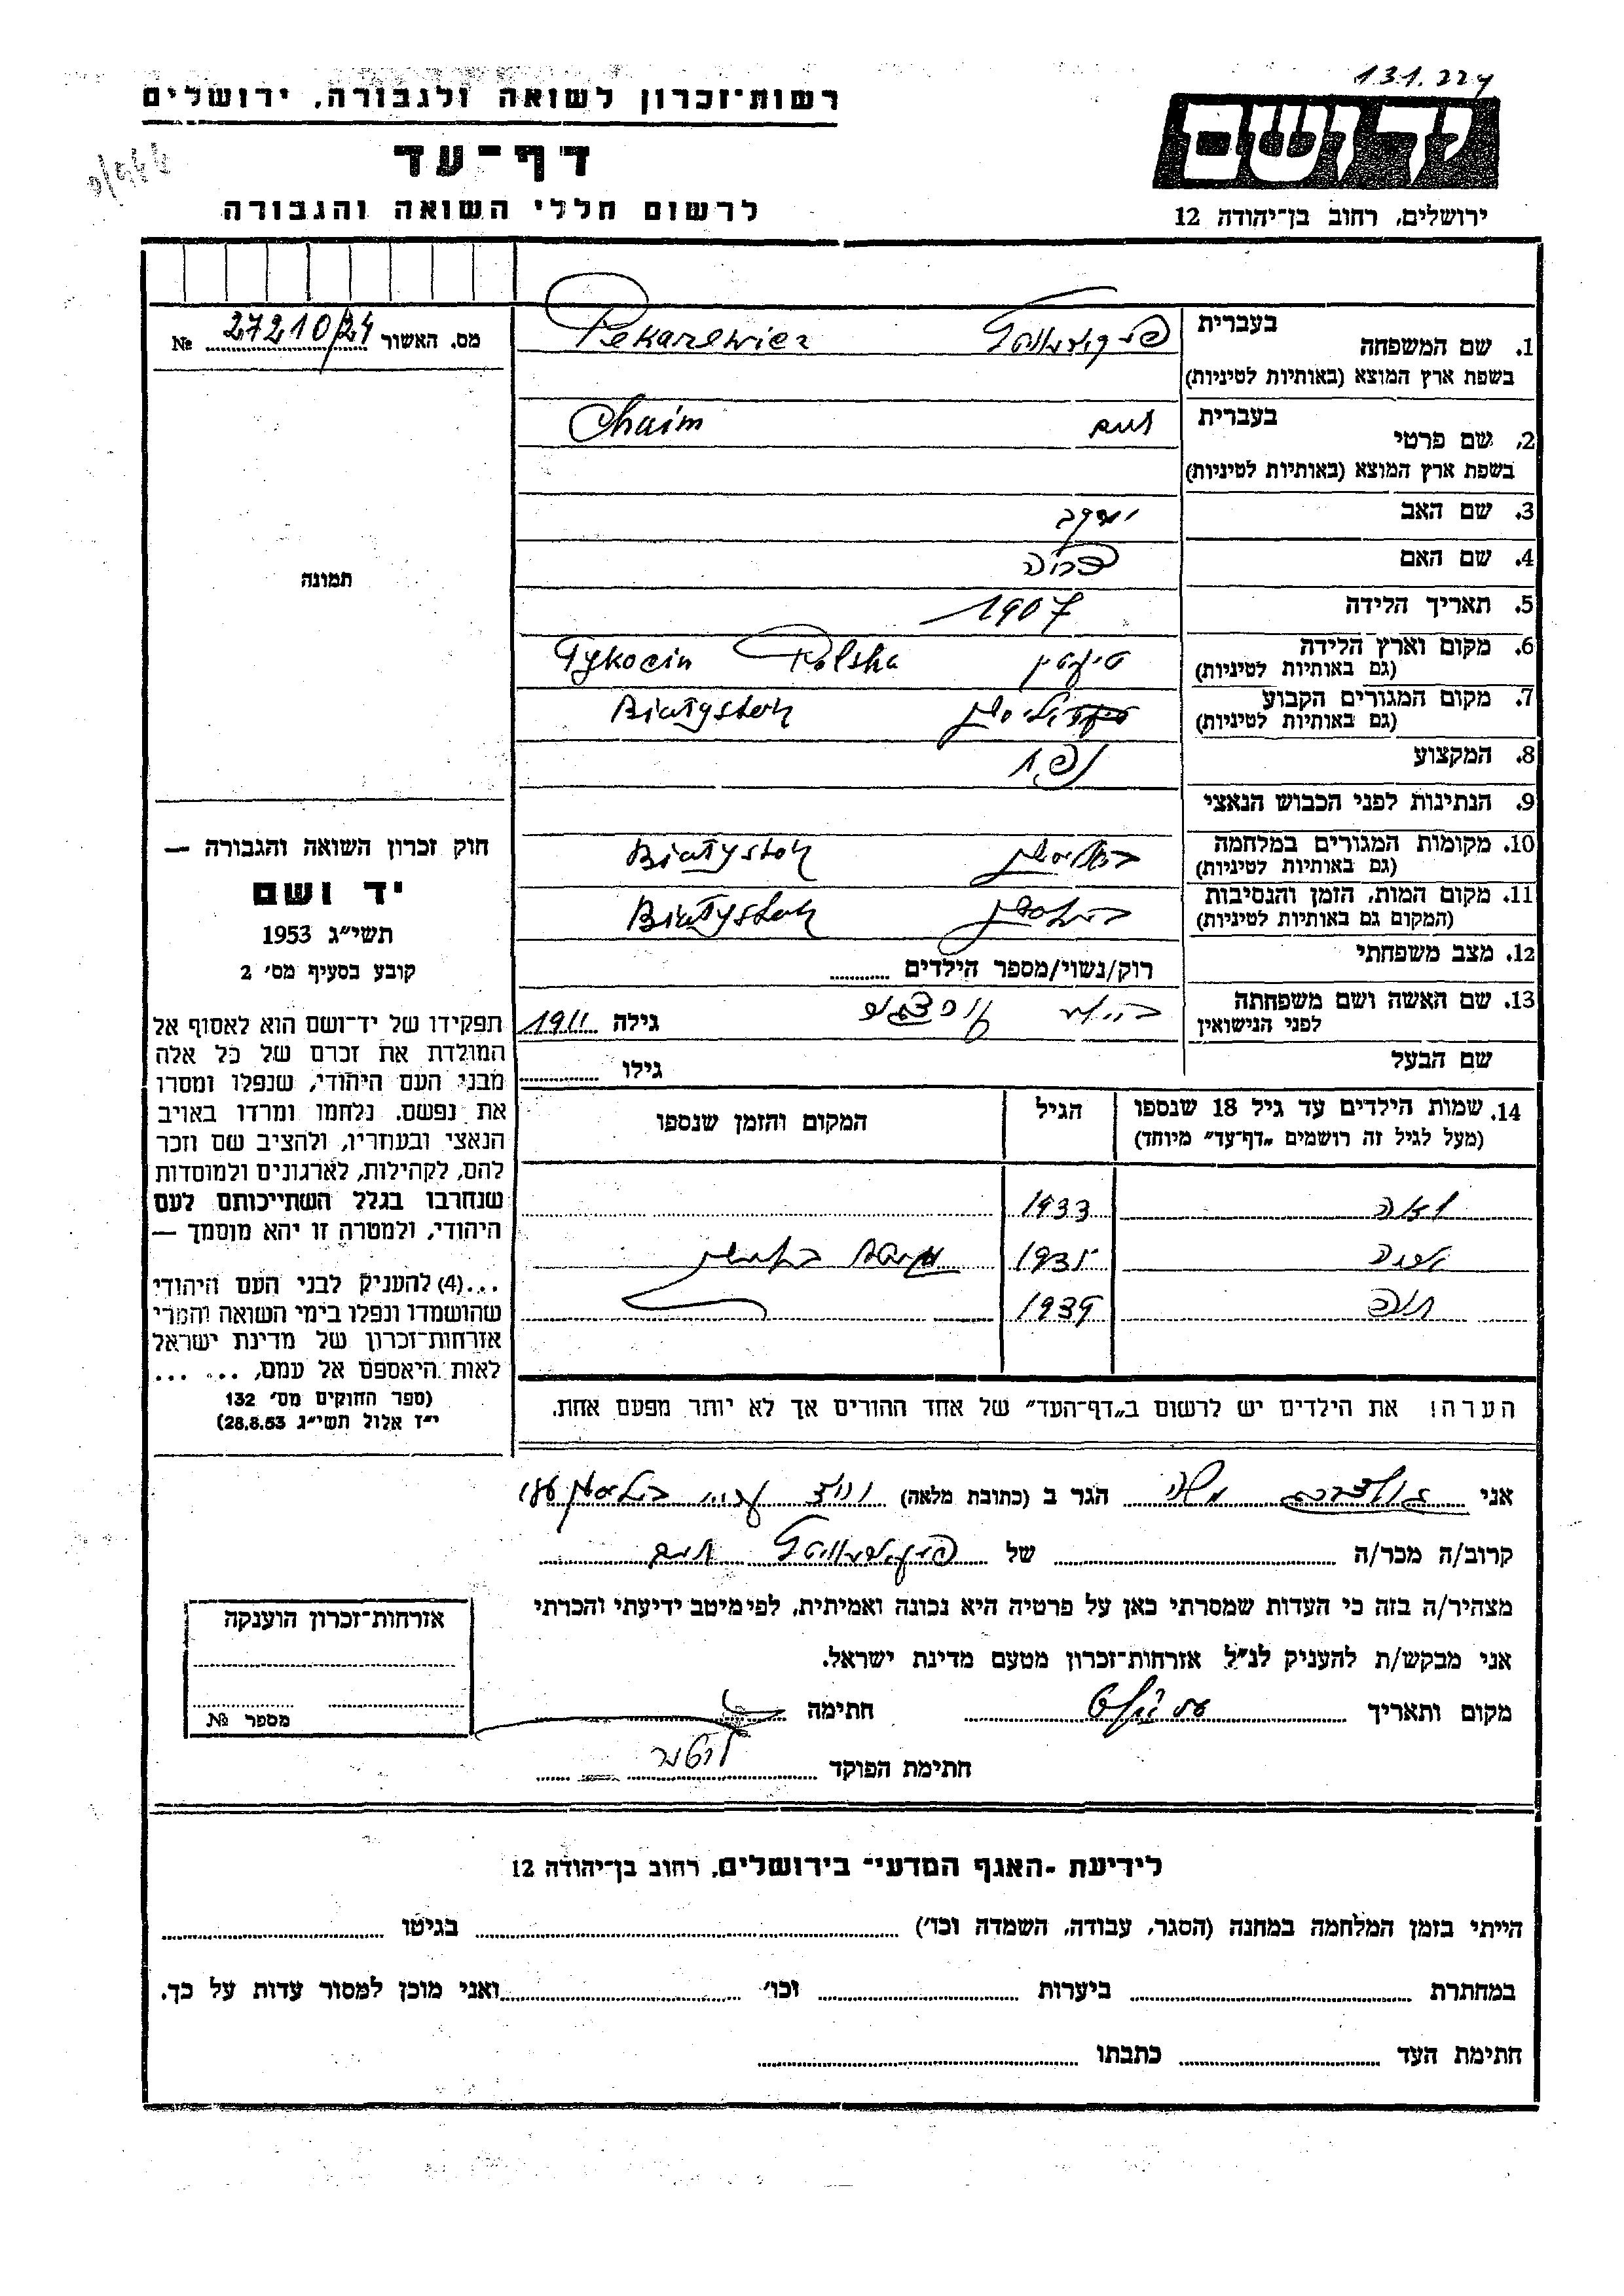 131.224
רשות־זכרון לשואה ולגבורה, ירושלים
דף־עד
לרשום חללי השואה והגבורה
יד ושם
ירושלים, רחוב בן־יהודה 12
מס. האשור № 27210/24
תמונה
חוק זכרון השואה והגבורה —
יד ושם
תשי״ג 1953
קובע בסעיף מס׳ 2
תפקידו של יד־ושם הוא לאסוף אל
המולדת את זכרם של כל אלה
מבני העם היהודי, שנפלו ומסרו
את נפשם. נלחמו ומרדו באויב
הנאצי ובעוזריו, ולהציב שם וזכר
להם, לקהילות, לארגונים ולמוסדות
שנחרבו בגלל השתייכותם לעם
היהודי, ולמטרה זו יהא מוסמך —
...(4) להעניק לבני העם היהודי
שהושמדו ונפלו בימי השואה והמרי
אזרחות־זכרון של מדינת ישראל
לאות היאספם אל עמם, ... ...
(ספר החוקים מס׳ 132
י״ז אלול תשי״ג 28.8.53)
1. שם המשפחה בעברית Pekarewicz
בשפת ארץ המוצא (באותיות לטיניות)
2. שם פרטי בעברית חיים Chaim
בשפת ארץ המוצא (באותיות לטיניות)
3. שם האב יעקב
4. שם האם
5. תאריך הלידה 1907
6. מקום וארץ הלידה טיקטין Polsha Tykocin
(גם באותיות לטיניות)
7. מקום המגורים הקבוע Białystok
(גם באותיות לטיניות)
8. המקצוע נפח
9. הנתינות לפני הכבוש הנאצי
10. מקומות המגורים במלחמה ביאליסטוק Białystok
(גם באותיות לטיניות)
11. מקום המות, הזמן והנסיבות ביאליסטוק Białystok
(המקום גם באותיות לטיניות)
12. מצב משפחתי רוק/נשוי/מספר הילדים
13. שם האשה ושם משפחתה גילה 1911
לפני הנישואין
שם הבעל גילו
14. שמות הילדים עד גיל 18 שנספו הגיל המקום והזמן שנספו
(מעל לגיל זה רושמים „דף־עד״ מיוחד)
לאה 1933
1935
1939
הערה! את הילדים יש לרשום ב„דף־העד״ של אחד ההורים אך לא יותר מפעם אחת.
אני גולדברג משה הגר ב (כתובת מלאה)
קרוב/ה מכר/ה של חיים
מצהיר/ה בזה כי העדות שמסרתי כאן על פרטיה היא נכונה ואמיתית, לפי מיטב ידיעתי והכרתי
אני מבקש/ת להעניק לנ״ל אזרחות־זכרון מטעם מדינת ישראל.
מקום ותאריך חתימה
חתימת הפוקד
אזרחות־זכרון הוענקה
מספר №
לידיעת ־האגף המדעי־ בירושלים, רחוב בן־יהודה 12
הייתי בזמן המלחמה במחנה (הסגר, עבודה, השמדה וכו׳) בגיטו
במחתרת ביערות וכו׳ ואני מוכן למסור עדות על כך.
חתימת העד כתבתו